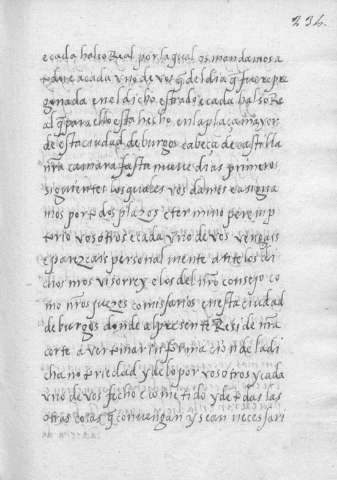 234
e cada halso Real por la qual os mandamos a
todos e a cada vno de vos q̃ del dia q̃ fuere pre
gonada en el dicho estrado e cada halso Re
al q̃ para ello esta hecho en la plaça mayor
de esta ciudad de burgos cabeça de castilla
nr̃a camara fasta nueve dias primeros
siguientes los quales vos damos e asigna
mos por todos plazos e termino peremp
torio vosotros e cada vno de vos vengais
e parezcais personalmente ante los di
chos nr̃os visorrey e los del nr̃o consejo co
mo nr̃os juezes comisarios en esta ciudad
de burgos donde al presente Reside nr̃a
corte a ver tomar informacion de la di
cha notoriedad y de lo por vosotros y cada
vno de vos fecho e cometido y de todas las
otras cosas q̃ convengan y sean necesari